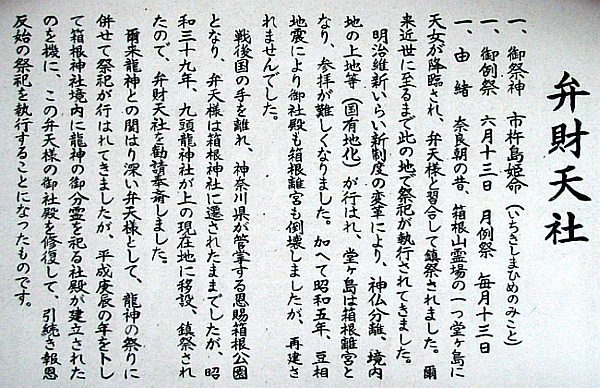 弁財天社
一、御祭神　市杵島姫命（いちきしまひめのみこと）
一、御例祭　六月十三日　月例祭　毎月十三日
一、由　緒　奈良朝の昔、箱根山霊場の一つ堂ヶ島に
天女が降臨され、弁天様と習合して鎮祭されました。爾
来近世に至るまで此の地で祭祀が執行されてきました。
明治維新いらい新制度の変革により、神仏分離、境内
地の上地等（国有地化）が行はれ、堂ヶ島は箱根離宮と
なり、参拝が難しくなりました。加へて昭和五年、豆相
地震により御社殿も箱根離宮も倒壊しましたが、再建さ
れませんでした。
戦後国の手を離れ、神奈川県が管掌する恩賜箱根公園
となり、弁天様は箱根神社に遷されたままでしたが、昭
和三十九年、九頭龍神社が上の現在地に移設、鎮祭され
たので、弁財天社を勧請奉斎しました。
爾来龍神との関はり深い弁天様として、龍神の祭りに
併せて祭祀が行はれてきましたが、平成庚辰の年を卜し
て箱根神社境内に龍神の御分霊を祀る社殿が建立された
のを機に、この弁天様の御社殿を修復して、引続き報恩
反始の祭祀を執行することになったものです。